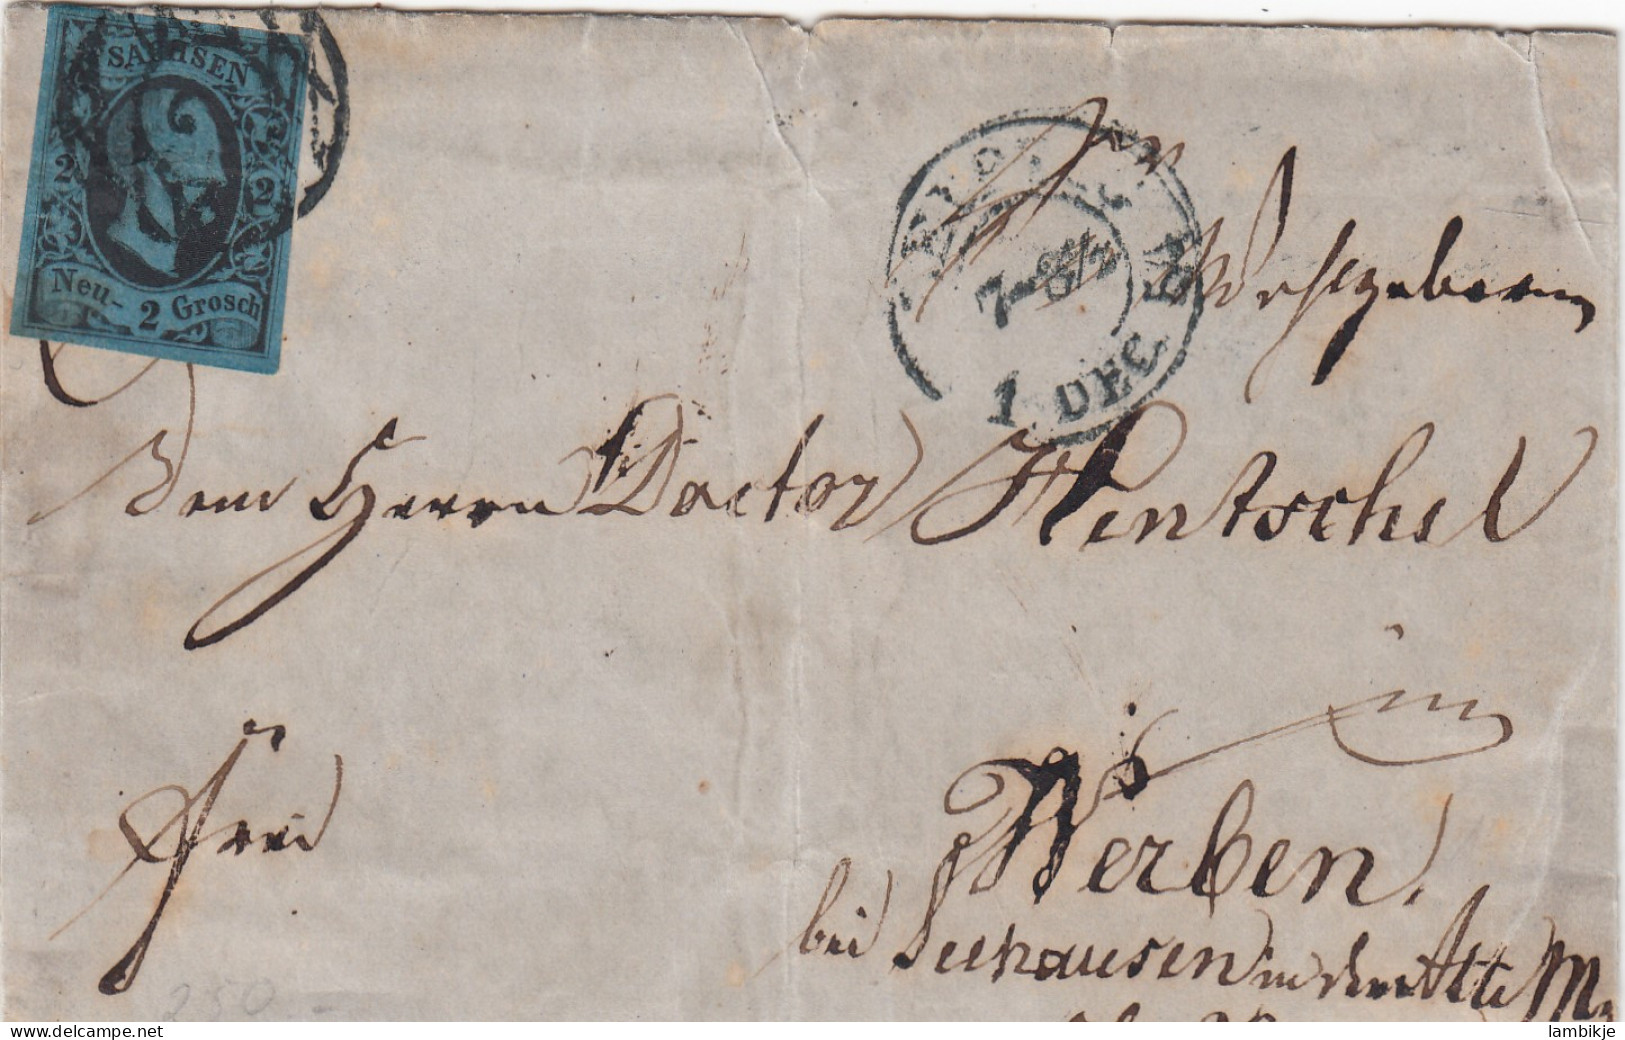 SACHSEN
2 2
Neu- 2 Grosch
7-8½
1 DEC 54
Wohlgeboren
Dem Herrn Doctor Hentschel
in
Frei
Werben.
bei Seehausen in der Alt M
250 -
lambikje